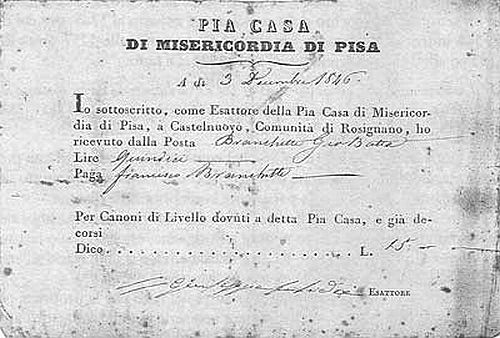 PIA CASA
DI MISERICORDIA DI PISA
A di 3 Dicembre 1846.
Io sottoscritto, come Esattore della Pia Casa di Misericor-
dia di Pisa, a Castelnuovo, Comunità di Rosignano, ho
ricevuto dalla Posta Branchetti Gio Batta
Lire Quindici
Paga Francesco Branchetti
Per Canoni di Livello dovuti a detta Pia Casa, e già de-
corsi
Dico . . . . . . . . . . . . . . . . . . . . L. 15 —
ESATTORE